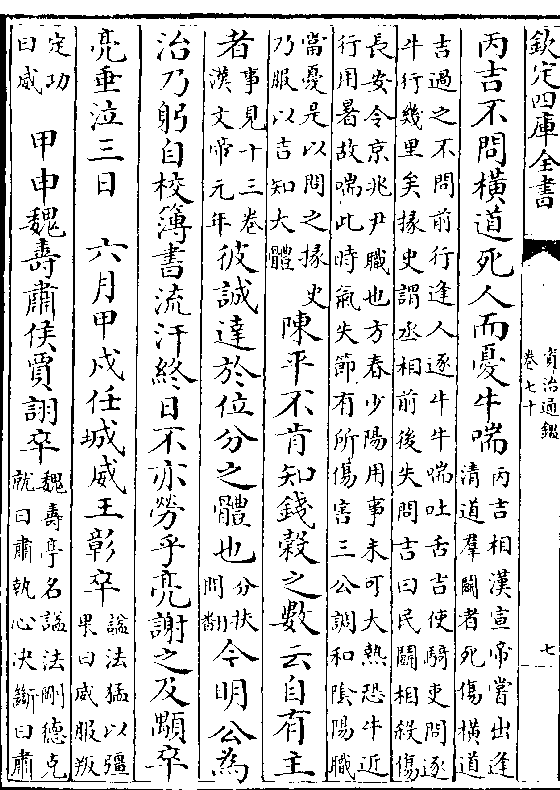 欽定四庫全書
資治通鑑
卷七十
七
丙吉不問橫道死人而憂牛喘丙吉相漢宣帝嘗出逢清道羣鬭者死傷橫道
吉過之不問前行逢人逐牛牛喘吐舌吉使騎吏問逐牛行幾里矣掾史謂丞相前後失問吉曰民鬭相殺傷
長安令京兆尹職也方春少陽用事未可大熱恐牛近行用暑故喘此時氣失節有所傷害三公調和陰陽職
當憂是以問之掾史乃服以吉知大體陳平不肯知錢穀之數云自有主
者事見十三卷漢文帝元年彼誠達於位分之體也分扶問翻今明公為
治乃躬自校簿書流汗終日不亦勞乎亮謝之及顒卒
亮垂泣三日 六月甲戌任城威王彰卒諡法猛以彊果曰威服叛
定功曰威 甲申魏壽肅侯賈詡卒魏壽亭名諡法剛德克就曰肅執心決斷曰肅